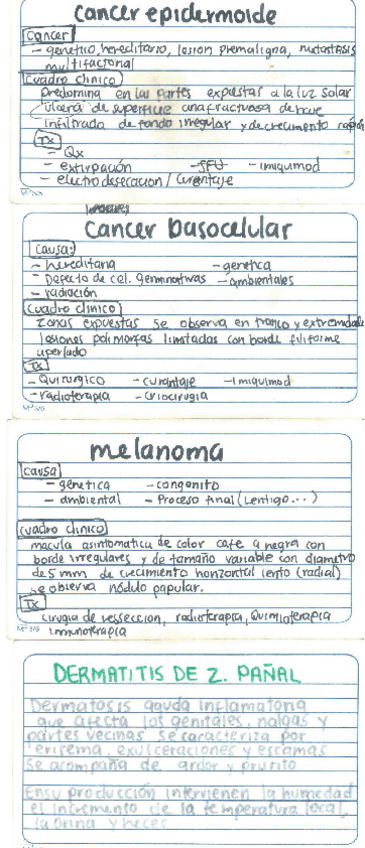 Cancer epidermoide
Cancer
- genetico, hereditario, lesion premaligna, metastasis
multifactorial
Cuadro clinico
Predomina en las partes expuestas a la luz solar
ulcera de superficie anafractuosa de base
infiltrada de fondo irregular y de crecimiento rapido
Tx
- Qx
- extirpación - 5FU - imiquimod
- electrodesecacion / Curentaje
Cancer basocelular
Causa:
- hereditaria - genetica
- Defecto de cel. Germinativas - ambientales
- radiación
Cuadro clinico
zonas expuestas se observa en tronco y extremidade
lesiones polimorfas limitadas con borde filiforme
aperlado
Tx
- Quirurgico - curentaje - Imiquimod
- radioterapia - criocirugia
melanoma
causa
- genetica - congenito
- ambiental - Proceso final (Lentigo...)
cuadro clinico
macula asintomatica de color cafe a negra con
borde irregulares y de tamaño variable con diametro
de 5 mm de crecimiento horizontal lento (radial)
se observa nódulo papular.
Tx
cirugia de resseccion, radioterapia, Quimioterapia
inmunoterapia
DERMATITIS DE Z. PAÑAL
Dermatosis aguda inflamatoria
que afecta los genitales, nalgas y
partes vecinas se caracteriza por
eritema, exulceraciones y escamas
Se acompaña de ardor y prurito
En su producción intervienen la humedad
el incremento de la temperatura local,
la orina y heces